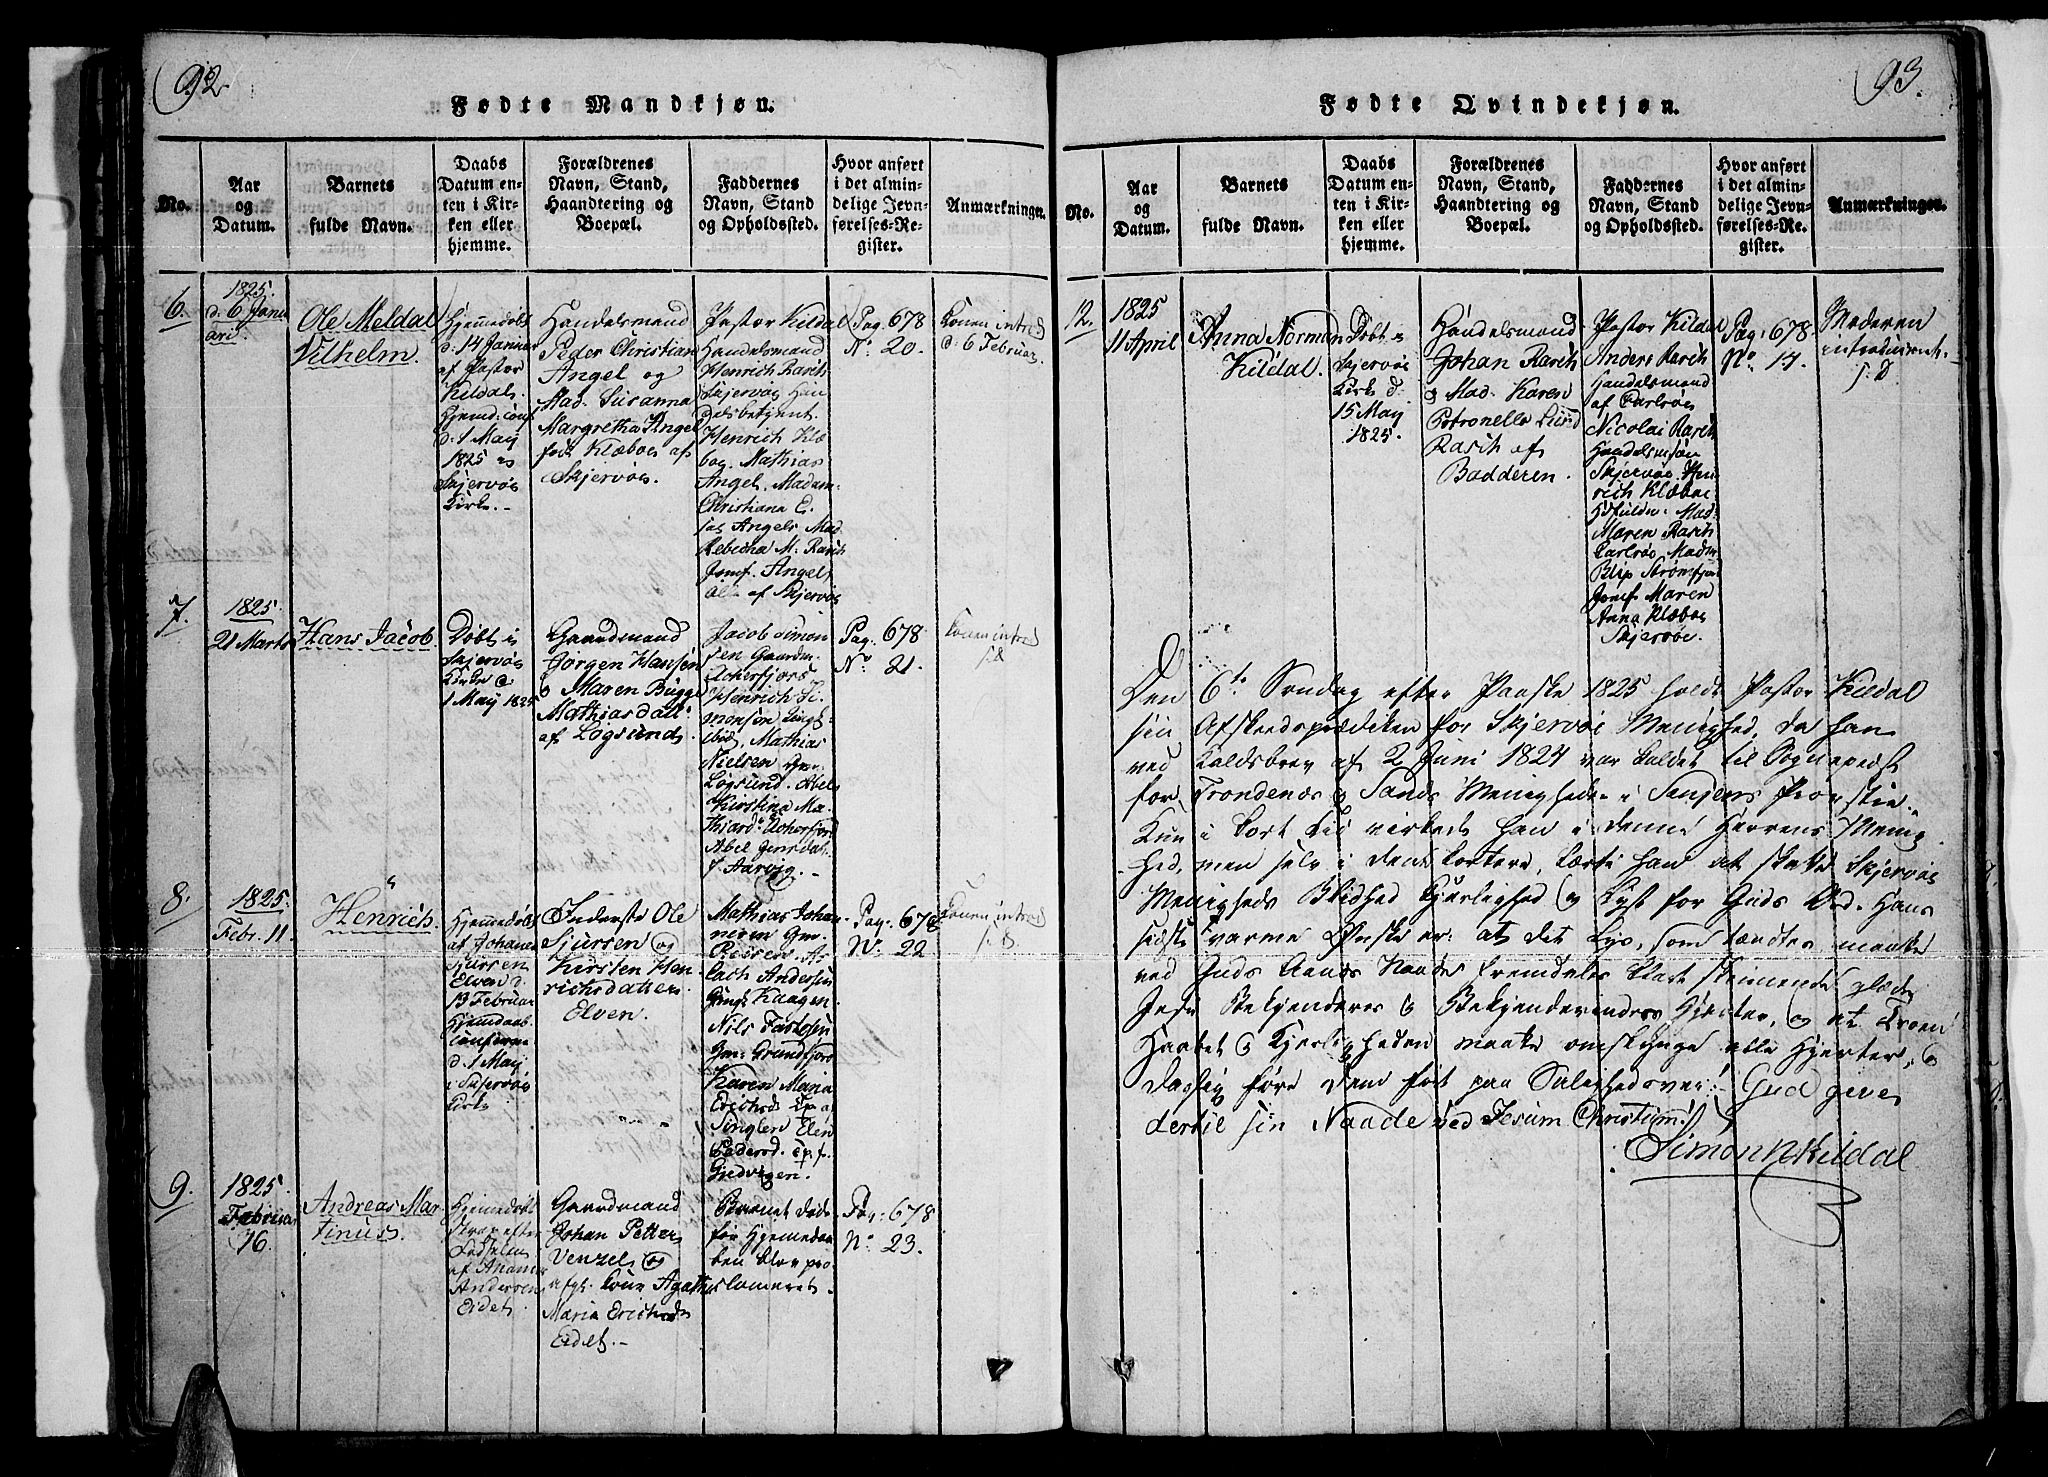 92
Fødte Mandkjøn.
No.
Aar
og
Datum.
Barnets
fulde Navn.
Daabs
Datum en-
ten i Kir-
ken eller
hjemme.
Forældrenes
Navn, Stand,
Haandtering og
Boepæl.
Faddernes
Navn, Stand
og Opholdssted.
Hvor anført
i det almin-
delige Jevn-
førelses-Re-
gister.
Anmærkninger.
6.
1825.
d: 6 Janu
ari.
Ole Meldal
Vilhelm.
Hjemmedøbt
d: 14 Januar
af Pastor
Kildal.
Hjemd: conf
d: 1 Maij
1825 i
Skjervøe
Kirke.-
Handelsmand
Peder Christian
Angel og
Mad. Susanna
Margretha Angel
fød Klæboe af
Skjervøe.
Pastor Kildal
Handelsmand
Henrich Rasch
Skjervøe Han
delsbetjent
Henrich Klæ
boe, Mathias
Angel, Madam
Christiana
Angel, Mad
Rebecka M. Rasch
Jomf. Angel
alle af Skjervøe
Pag. 678
No. 20.
Konen introd
d: 6 Februar.
7.
1825.
21 Marts
Hans Jacob
Døbt i
Skjervøe
Kirke d
1 Maij 1825
Gaardmand
Jørgen Hansen
o Maren Bugge
Mathiasdatt:
af Løgsund.
Jacob Simon
sen Gaardm.
Henrich Si
monsen
Mathias
Nielsen
Løgsund. Abel
Kirstina Ma
thiasd:
Abel
Pag. 678
No. 21.
Konen introd
s. D
8.
1825.
Febr. 11
Henrich
Hjemmedøbt
af Johanes
Sjursen
Elven d.
13 Februar
Hjemdaab.
conferm
d. 1 Maij
i Skjervøe
Kirke
Inderste Ole
Sjursen og
Kirsten Hen
richsdatter
Elven.
Mathias Johan
nesen
Reisen. As
lach Andersen
Kaagen.
Nils
Karen Maria
Erichsd.
Elen
Pedersd.
Pag. 678
No. 22
Konen introd
s. D.
9.
1825.
Februar
16
Andreas Mar
tinus.
Hjemmedøbt
strax efter
Fødselen
af
Andersen
Eidet.
Gaardmand
Johan Petter
Venzel og
Kone Agatha
Maria Erichsd
Eidet.-
Barnet døde
før Hjemmedaa
ben blev pro
clameret.
Pag. 678
No. 23.
93.
Fødte Qvindekjøn.
No.
Aar
og
Datum.
Barnets
fulde Navn.
Daabs
Datum en-
ten i Kir-
ken eller
hjemme.
Forældrenes
Navn, Stand,
Haandtering og
Boepæl.
Faddernes
Navn, Stand
og Opholdssted.
Hvor anført
i det almin-
delige Jevn-
førelses-Re-
gister.
Anmærkninger.
12.
1825
11 April
Anna Norman
Kildal.
Døbt i
Skjervøe
Kirke d.
15 Maij
1825.
Handelsmand
Johan Rasch
o Mad. Karen
Petronella Lund
Rasch af
Badderen.
Pastor Kildal
Anders Rasch
Handelsmand
af Carlsøe
Nicolai Rasch
Handelsmand
Skjervøe. Hen
rich Klæboe
Mad.
Maren Rasch
Carlsøe. Madm
Strømfjord
Jomf. Maren
Anna Klæboe
Skjervøe.
Pag. 678
No. 17.
Moderen
introduceret
s. D.
Den 6te Søndag efter Paaske 1825 holdt Pastor Kildal
sin Afskeedsprædiken for Skjervøe Menighed, da han
ved Kaldsbrev af 2 Juni 1824 var kaldet til Sognepræst
for Trondenæs og Sands Menigheder i Senjens Provstie.
Kun i kort Tid virkede han i denne Herrens Menig
hed, men selv i denne kortere, lærte han at skatte Skjervøe
Menigheds Blidhed Kjerlighed og Lyst for Guds Ord. Hans
sidste varme Ønske er: at det Lys, som tændtes maatte
ved Guds Aands Naade fremdeles klart skinnende glæde
Jesu Bekjenderes og Bekjenderindes Hjerter, og at Troen
Haabet og Kjerligheden maatte omslynge alle Hjerter, og
daglig føre dem frit paa Salighedsvei! Gud give
dertil sin Naade ved Jesum Christum!
Simon Kildal